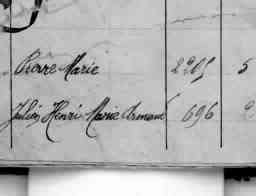 Pierre Marie 2205 5
Julien Henri Marie Armand 696